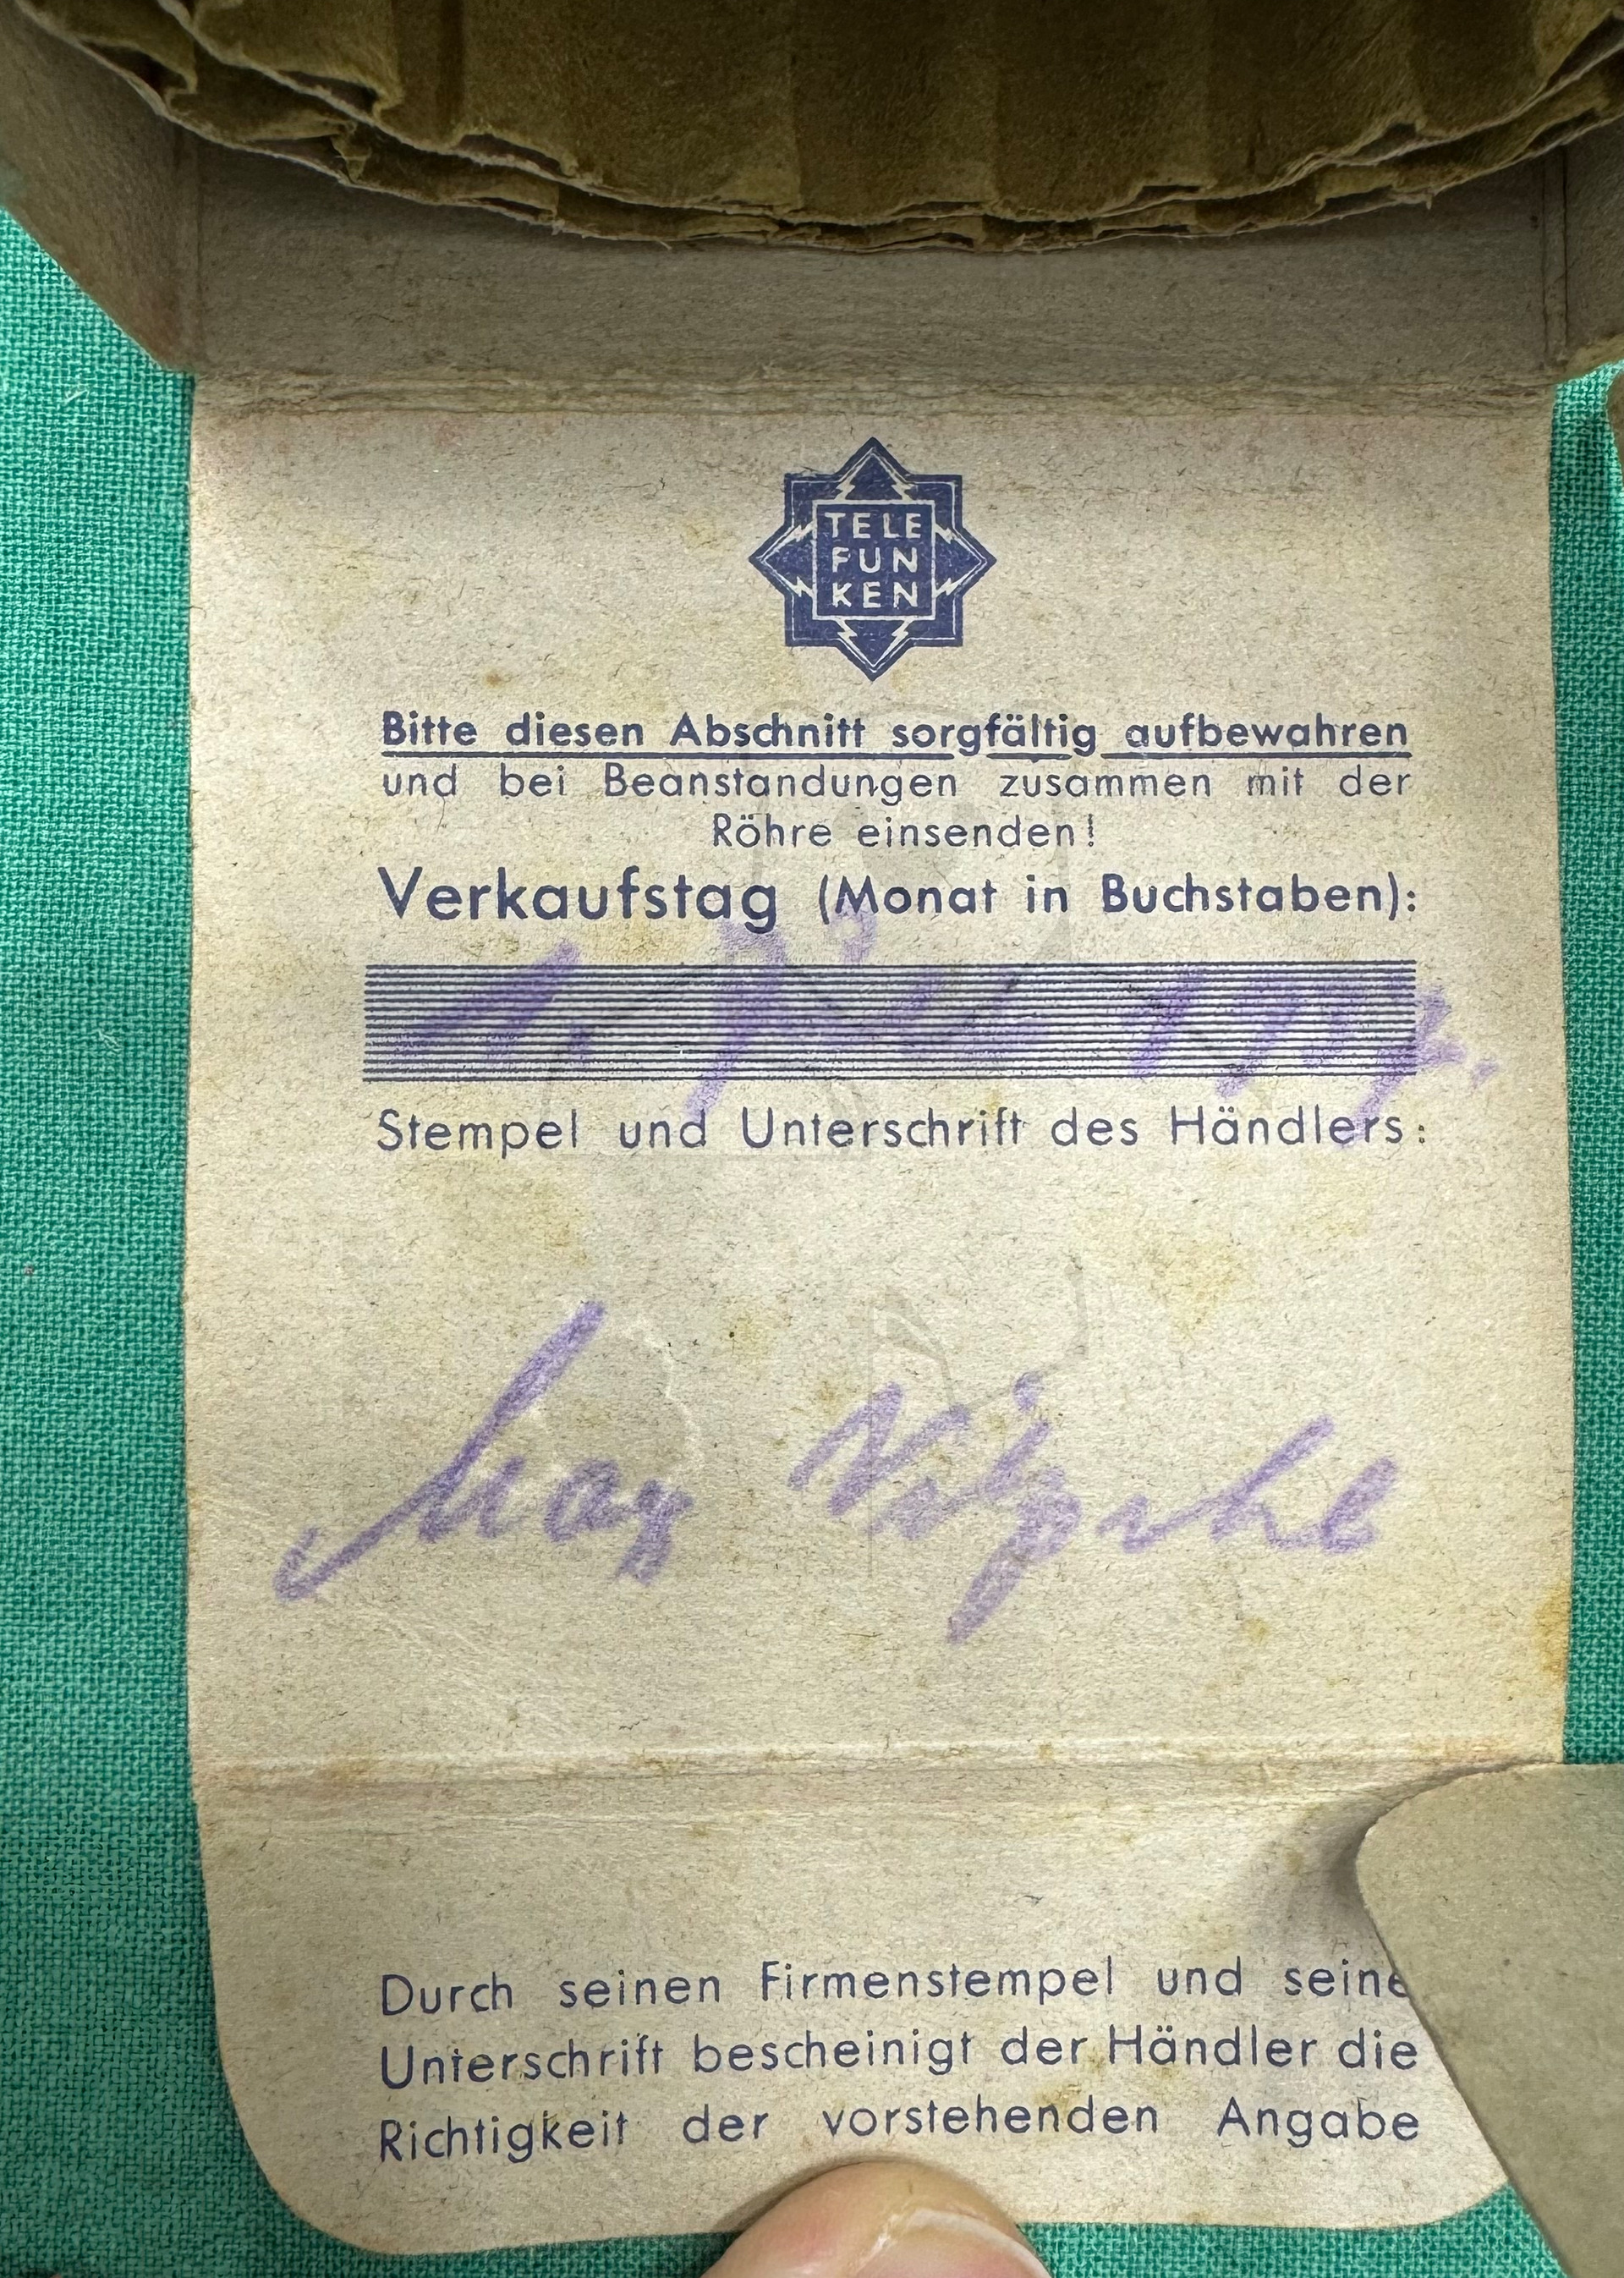 TELE
FUN
KEN
Bitte diesen Abschnitt sorgfältig aufbewahren
und bei Beanstandungen zusammen mit der
Röhre einsenden!
Verkaufstag (Monat in Buchstaben):
1.
Stempel und Unterschrift des Händlers:
Max
Durch seinen Firmenstempel und seine
Unterschrift bescheinigt der Händler die
Richtigkeit der vorstehenden Angabe